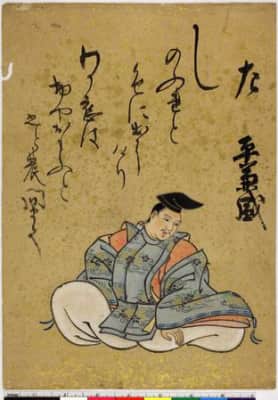 左
平兼盛
し
のふれと
色に出に
けり
わか恋は
物やおもふと